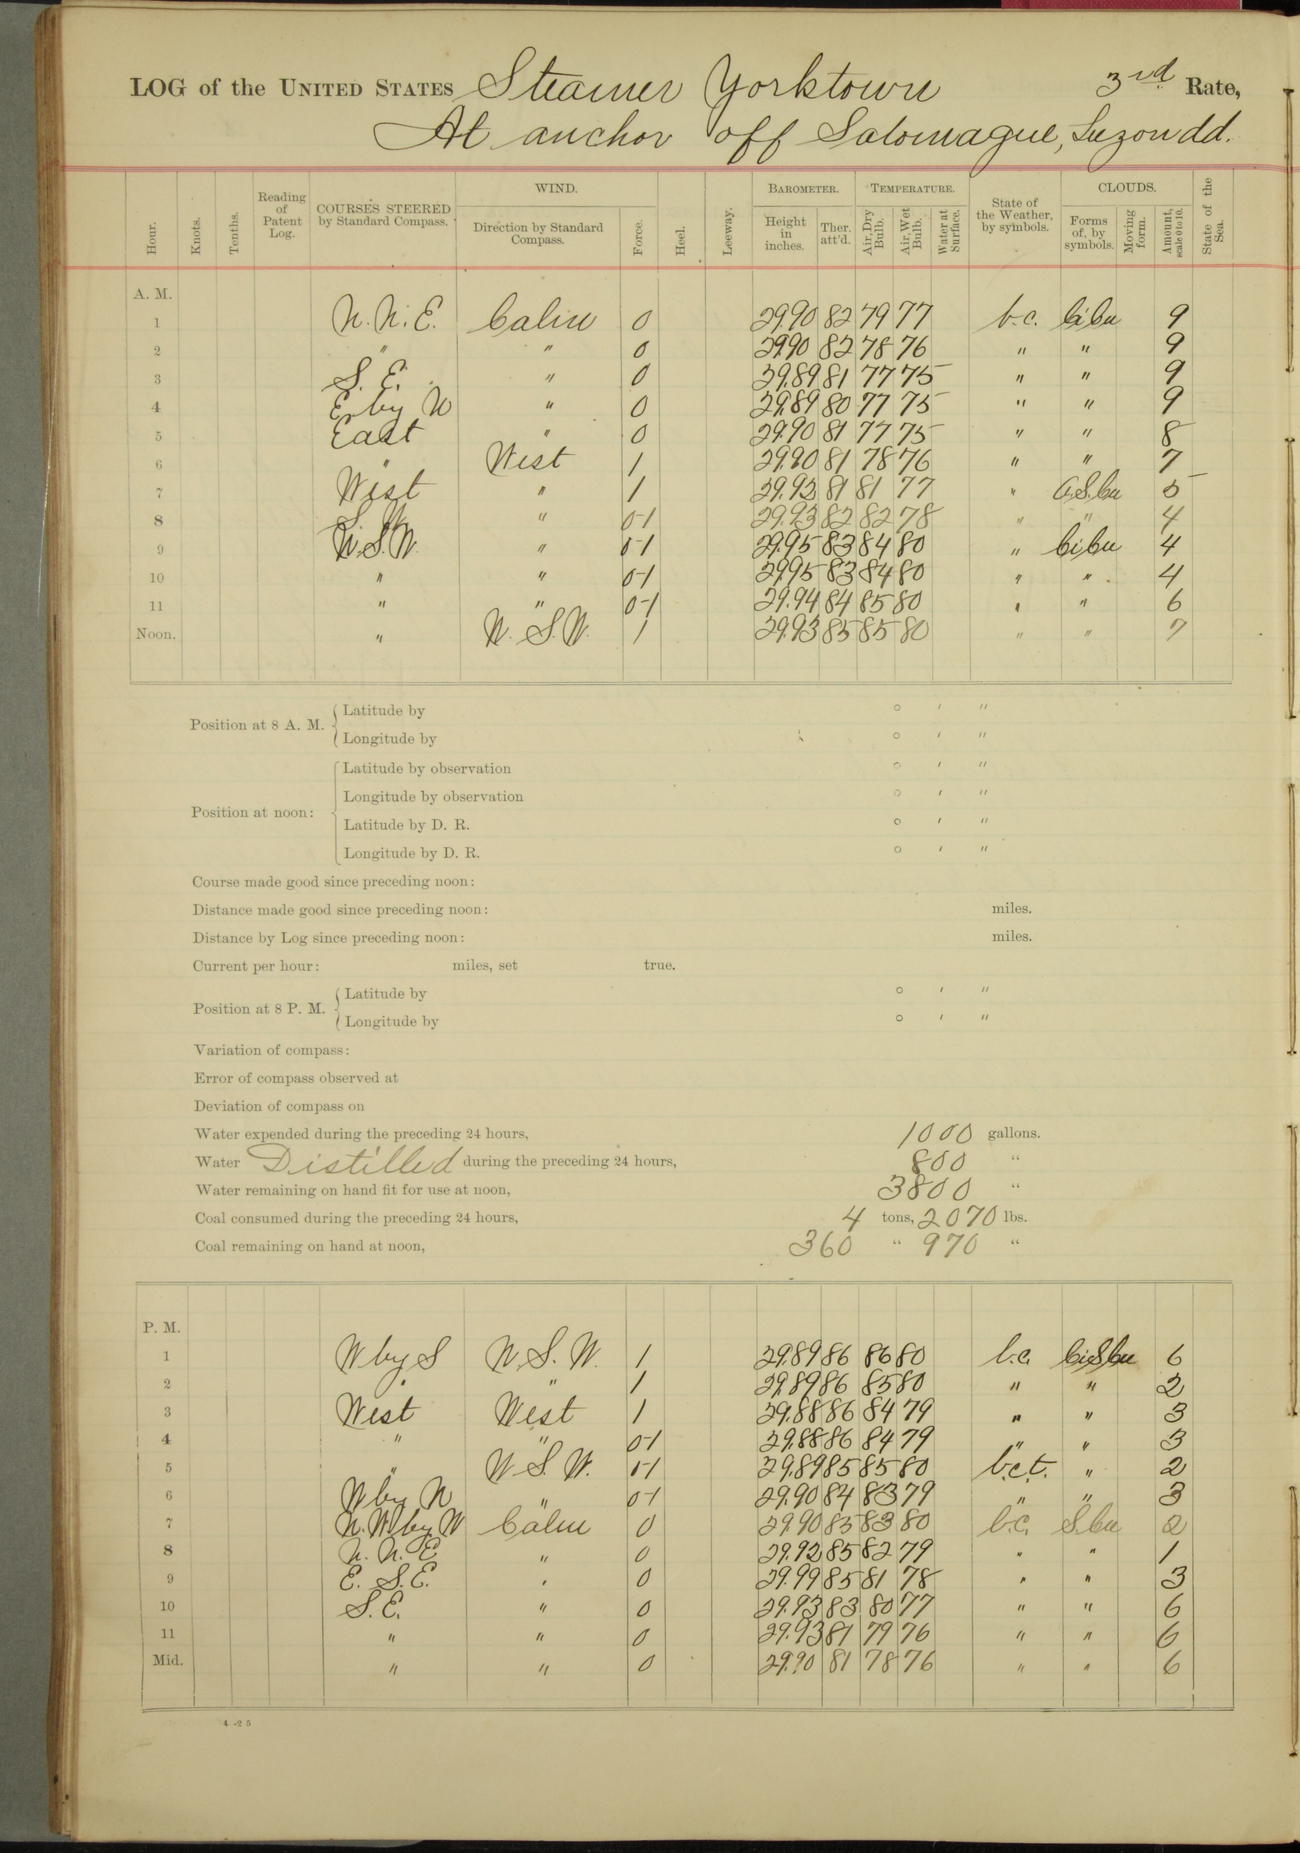 LOG of the UNITED STATES Steamer Yorktown 3rd Rate,
At anchor off Salomague, Luzon dd.
Hour. Knots. Tenths. Reading of Patent Log. COURSES STEERED by Standard Compass. WIND. Direction by Standard Compass. Force. Heel. Leeway. BAROMETER. Height in inches. Ther. att'd. TEMPERATURE. Air, Dry Bulb. Air, Wet Bulb. Water at Surface. State of the Weather, by symbols. CLOUDS. Forms of, by symbols. Moving form. Amount, scale 0 to 10. State of the Sea.
A. M.
1 N.N.E. Calm 0 29.90 82 79 77 b.c. Ci Cu 9
2 " " 0 29.90 82 78 76 " " 9
3 S. E. " 0 29.89 81 77 75 " " 9
4 E by N " 0 29.89 80 77 75 " " 9
5 East " 0 29.90 81 77 75 " " 8
6 " West 1 29.90 81 78 76 " " 7
7 West " 1 29.92 81 81 77 " 5
8 " 0-1 29.93 82 82 78 " " 4
9 W.S.W. " 0-1 29.95 83 84 80 " Ci Cu 4
10 " " 0-1 29.95 83 84 80 " " 4
11 " " 0-1 29.94 84 85 80 " " 6
Noon. " W. S.W. 1 29.93 85 85 80 " " 7
Position at 8 A. M. { Latitude by ° ' "
Longitude by ° ' "
Position at noon: { Latitude by observation ° ' "
Longitude by observation ° ' "
Latitude by D. R. ° ' "
Longitude by D. R. ° ' "
Course made good since preceding noon:
Distance made good since preceding noon: miles.
Distance by Log since preceding noon: miles.
Current per hour: miles, set true.
Position at 8 P. M. { Latitude by ° ' "
Longitude by ° ' "
Variation of compass:
Error of compass observed at
Deviation of compass on
Water expended during the preceding 24 hours, 1000 gallons.
Water Distilled during the preceding 24 hours, 800 "
Water remaining on hand fit for use at noon, 3800 "
Coal consumed during the preceding 24 hours, 4 tons, 2070 lbs.
Coal remaining on hand at noon, 360 " 970 "
P. M.
1 W by S W. S. W. 1 29.89 86 86 80 b.c. Ci S Cu 6
2 " " 1 29.89 86 85 80 " " 2
3 West West 1 29.88 86 84 79 " " 3
4 " " 0-1 29.88 86 84 79 " " 3
5 " W. S. W. 1-1 29.89 85 85 80 b.c.t. " 2
6 W by N " 0-1 29.90 84 83 79 " " 3
7 N.W. by W Calm 0 29.90 85 83 80 b.c. S.Cu 2
8 N. N. E " 0 29.92 85 82 79 " " 1
9 E. S.E. " 0 29.99 85 81 78 " " 3
10 S.E. " 0 29.93 83 80 77 " " 6
11 " " 0 29.93 81 79 76 " " 6
Mid. " " 0 29.90 81 78 76 " " 6
4-25